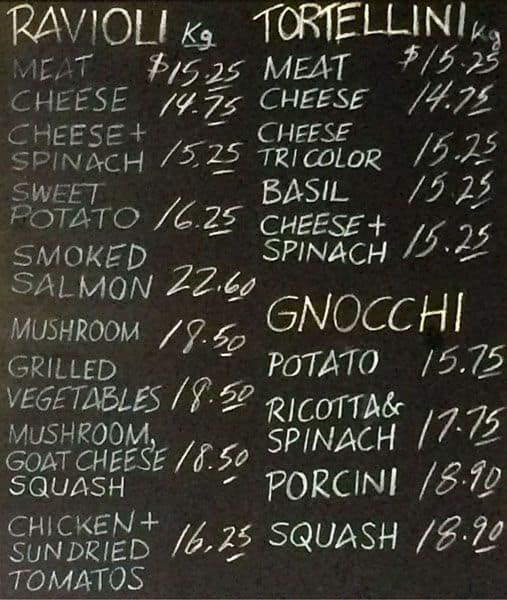 RAVIOLI Kg
MEAT $15.25
CHEESE 14.75
CHEESE +
SPINACH 15.25
SWEET
POTATO 16.25
SMOKED
SALMON 22.60
MUSHROOM 18.50
GRILLED
VEGETABLES 18.50
MUSHROOM,
GOAT CHEESE 18.50
SQUASH
CHICKEN +
SUNDRIED 16.25
TOMATOS
TORTELLINI Kg
MEAT $15.25
CHEESE 14.75
CHEESE
TRICOLOR 15.25
BASIL 15.25
CHEESE +
SPINACH 15.25
GNOCCHI
POTATO 15.75
RICOTTA &
SPINACH 17.75
PORCINI 18.90
SQUASH 18.90